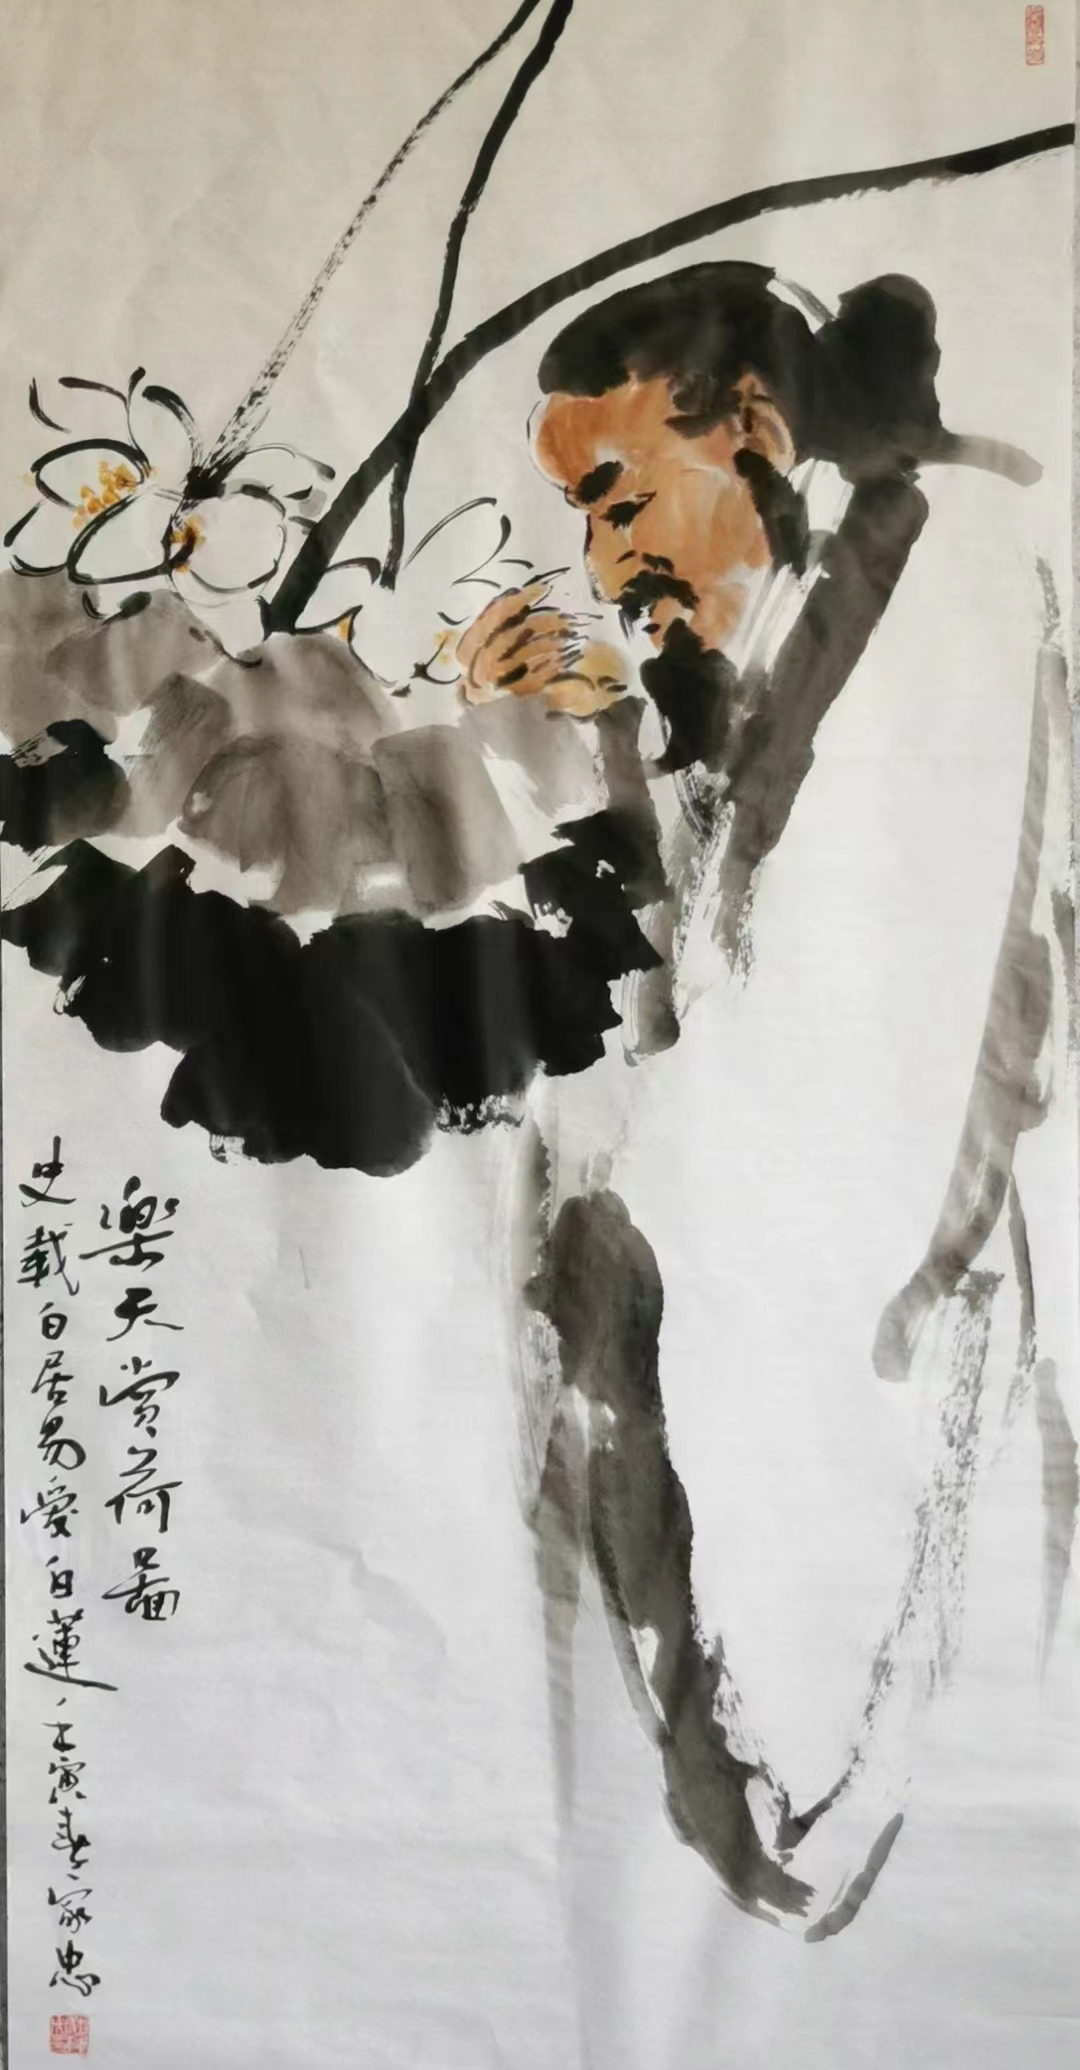 樂天賞荷圖
史載白居易愛白蓮
壬寅春家忠